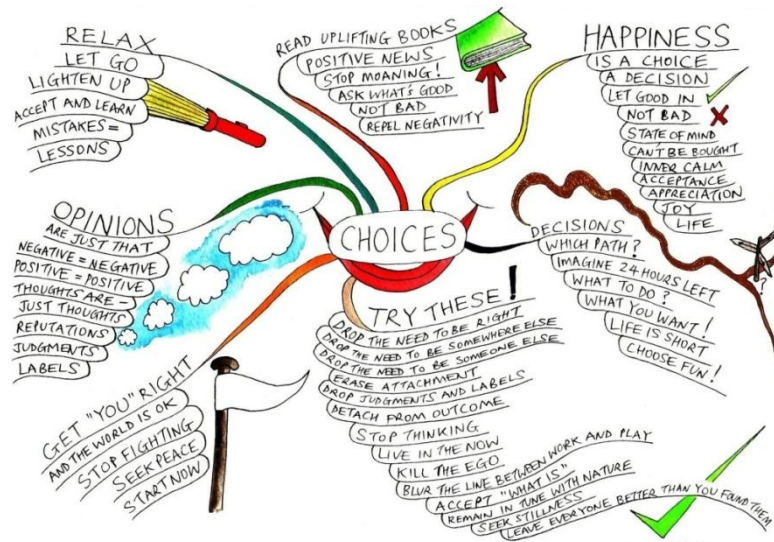 RELAX
LET GO
LIGHTEN UP
ACCEPT AND LEARN
MISTAKES =
LESSONS
READ UPLIFTING BOOKS
POSITIVE NEWS
STOP MOANING!
ASK WHAT'S GOOD
NOT BAD
REPEL NEGATIVITY
HAPPINESS
IS A CHOICE
A DECISION
LET GOOD IN
NOT BAD
STATE OF MIND
CAN'T BE BOUGHT
INNER CALM
ACCEPTANCE
APPRECIATION
JOY
LIFE
OPINIONS
ARE JUST THAT
NEGATIVE = NEGATIVE
POSITIVE = POSITIVE
THOUGHTS ARE -
JUST THOUGHTS
REPUTATIONS
JUDGMENTS
LABELS
CHOICES
DECISIONS
WHICH PATH?
IMAGINE 24 HOURS LEFT
WHAT TO DO?
WHAT YOU WANT!
LIFE IS SHORT
CHOOSE FUN!
?
GET "YOU" RIGHT
AND THE WORLD IS OK
STOP FIGHTING
SEEK PEACE
START NOW
TRY THESE!
DROP THE NEED TO BE RIGHT
DROP THE NEED TO BE SOMEWHERE ELSE
DROP THE NEED TO BE SOMEONE ELSE
ERASE ATTACHMENT
DROP JUDGMENTS AND LABELS
DETACH FROM OUTCOME
STOP THINKING
LIVE IN THE NOW
KILL THE EGO
BLUR THE LINE BETWEEN WORK AND PLAY
ACCEPT "WHAT IS"
REMAIN IN TUNE WITH NATURE
SEEK STILLNESS
LEAVE EVERYONE BETTER THAN YOU FOUND THEM